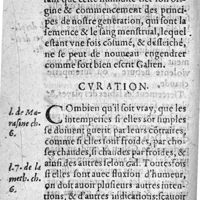 gine & commencement des princi-
pes de nostre generation, qui sont la
semence & le sang menstrual, lequel
estant vne fois cõsumé, & desseiché,
ne se peut de nouueau engendrer
comme fort bien escrit Galien.
CVRATION.
l. de Ma-
rasme ch.
6.
COmbien qu'il soit vray, que les
intemperies si elles sõt simples
se doiuent guerir par leurs cõtraires,
comme si elles sont froides, par cho-
ses chaudes, si chaudes par froides, &
ainsi des autres selon gal. Toutesfois
l.7. de la
meth. ch.
6.
si elles sont auec fluxion d'humeur,
on doit auoir plusieurs autres inten-
tiõs, & d'autres indications; sçauoir